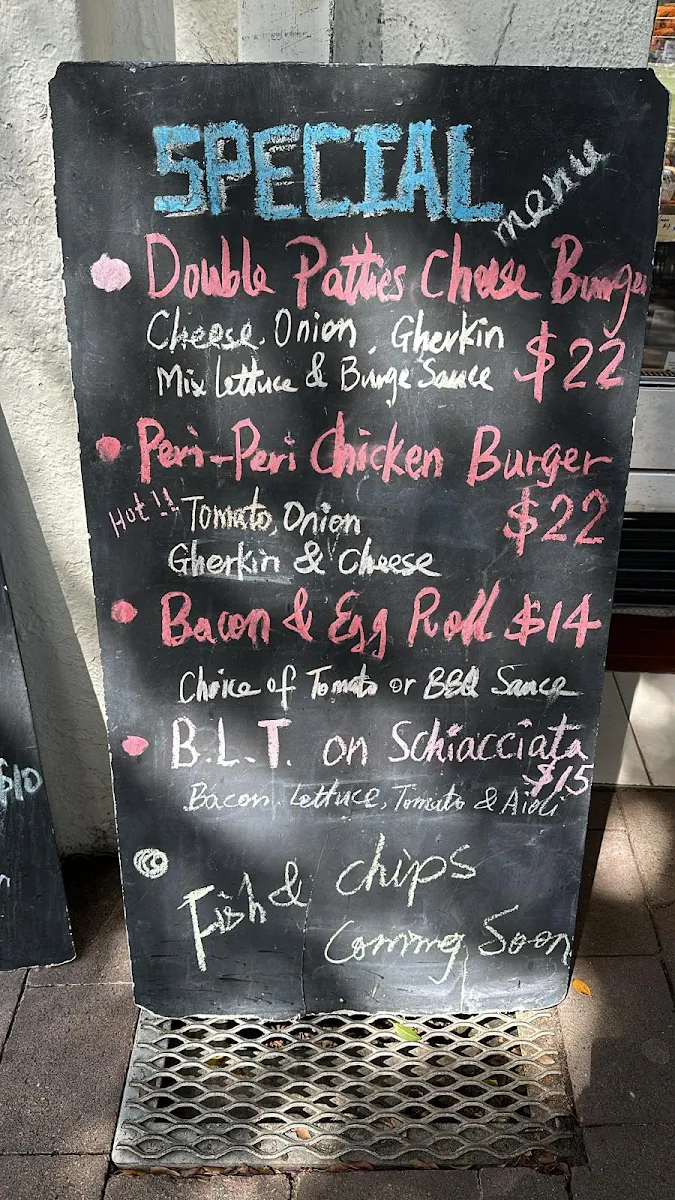 SPECIAL menu
Double Patties Cheese Burge
Cheese, Onion, Gherkin
Mix lettuce & Burge Sauce $22
Peri-Peri Chicken Burger
Hot!! Tomato, Onion $22
Gherkin & Cheese
Bacon & Egg Roll $14
Choice of Tomato or BBQ Sauce
B.L.T. on Schiacciata
$15
Bacon, Lettuce, Tomato & Aioli
Fish & chips
Coming Soon
$10